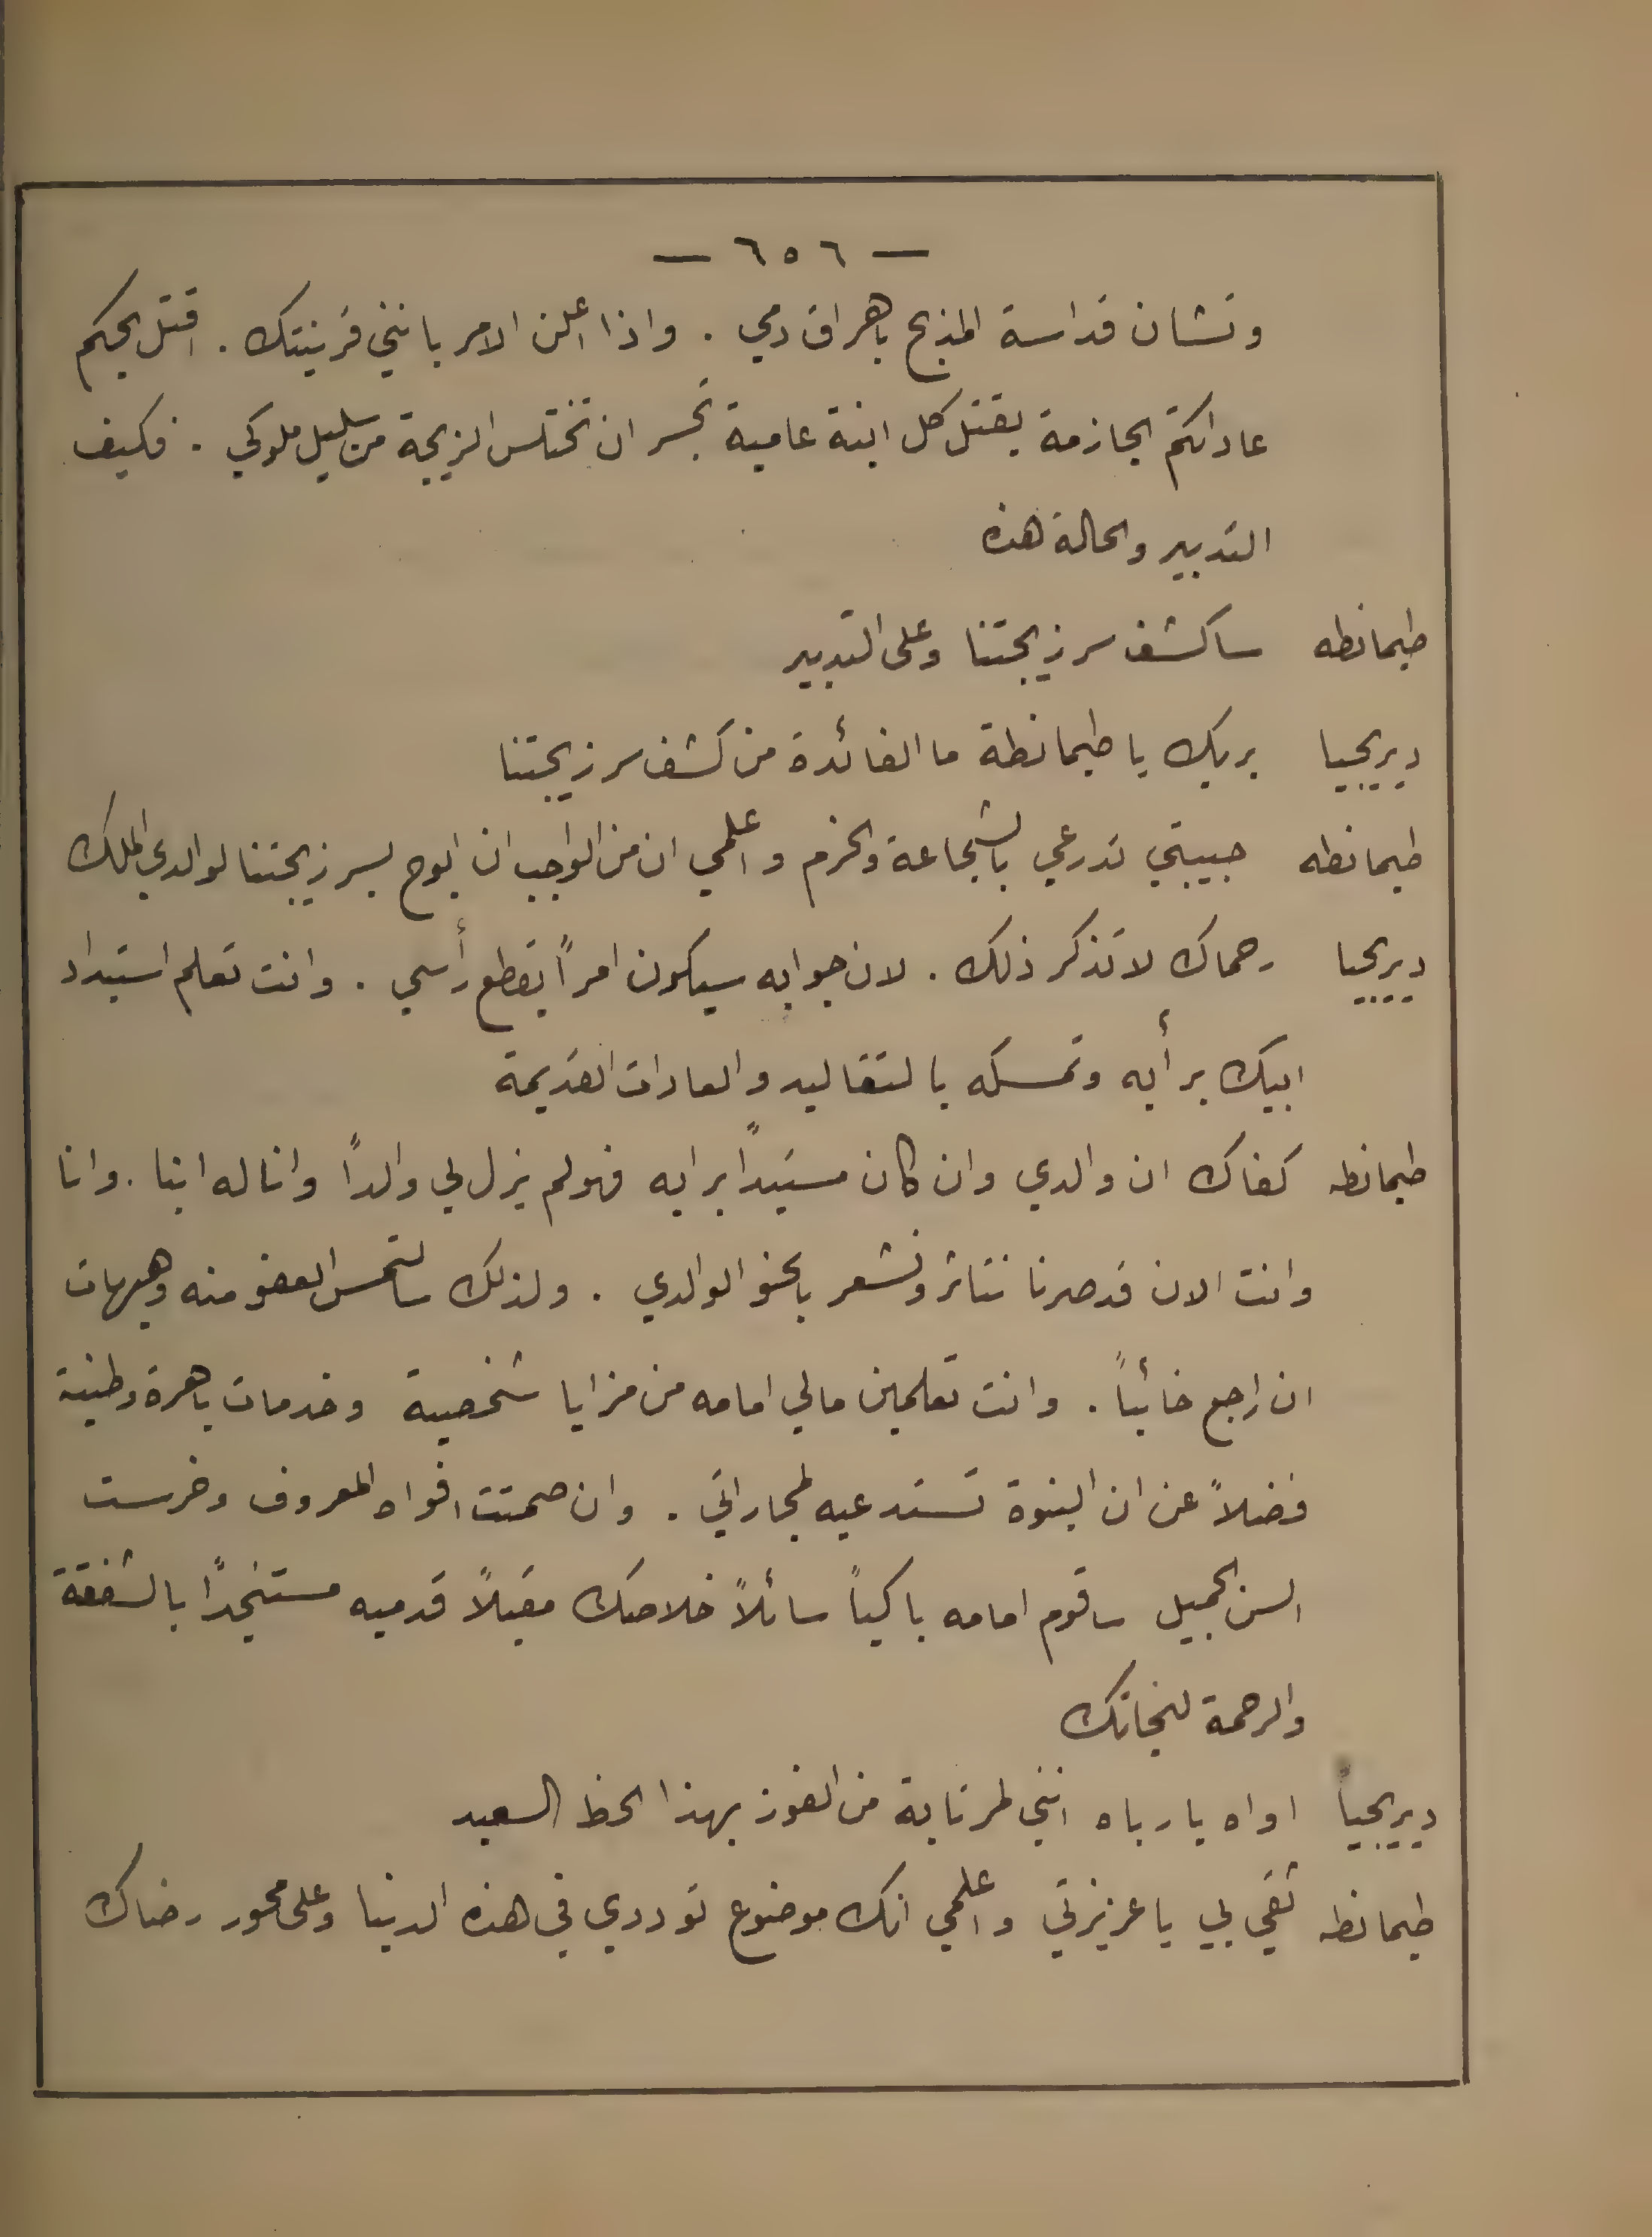 — ٦٥٦ —
وتشان قداسة المذبح باهراق دمي . واذا اعلن الامر بانني قرينتك . اقتل بحكم
عاداتكم الجازمة بقتل كل ابنة عامية تجسر ان تختلس الزيجة من سليل ملوكي . فكيف
التدبير والحالة هذه
طيمانطه ساكشف سر زيجتنا وعلي التدبير
ديريجيا بربك يا طيمانطة ما الفائدة من كشف سر زيجتنا
طيمانطه حبيبتي تدرعي بالشجاعة والحزم واعلمي ان من الواجب ان ابوح بسر زيجتنا لوالدي الملك
ديريجيا رحماك لا تذكر ذلك . لان جوابه سيكون امراً بقطع رأسي . وانت تعلم استبداد
ابيك برأيه وتمسكه بالتقاليد والعادات القديمة
طيمانطه كفاك ان والدي وان كان مستبداً برايه فهو لم يزل لي والداً وانا له ابنا . وانا
وانت الان قد صرنا نتاثر ونشعر بالحنو الوالدي . ولذلك سالتمس العفو منه وهيهات
ان اراجع خائباً . وانت تعلمين مالي امامه من مزايا شخصية وخدمات باهرة وطنية
فضلاً عن ان البنوة تستدعيه لمجاراتي . وان صمتت افواه المعروف وخرست
السن الجميل ساقوم امامه باكياً سائلاً خلاصك مقبلاً قدميه مستنجداً بالشفقة
والرحمة لنجاتك
ديريجيا اواه يا رباه انني لمرتابة من الفوز بهذا الحظ السعيد
طيمانطه ثقي بي يا عزيزتي واعلمي انك موضوع توددي في هذه الدنيا وعلى محور رضاك